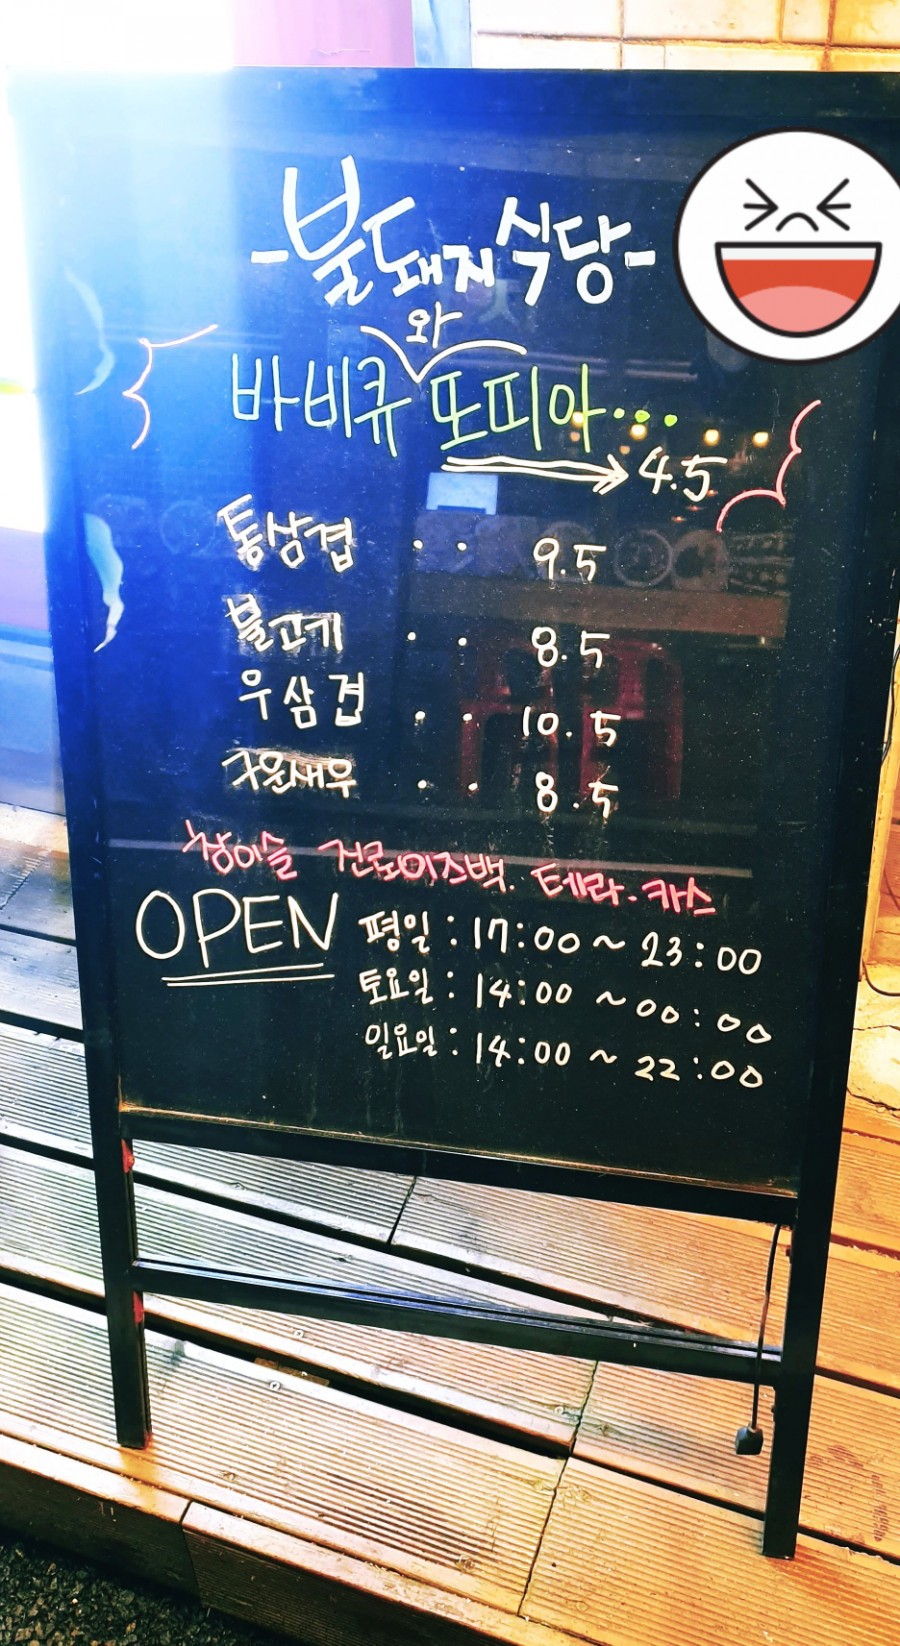 -불돼지식당-
와
바비큐 또피아...
→ 4.5
통삼겹 .. 9.5
불고기 .. 8.5
우삼겹 .. 10.5
구운새우 .. 8.5
참이슬 진로이즈백. 테라.카스
OPEN 평일 : 17:00 ~ 23:00
토요일 : 14:00 ~ 00:00
일요일 : 14:00 ~ 22:00